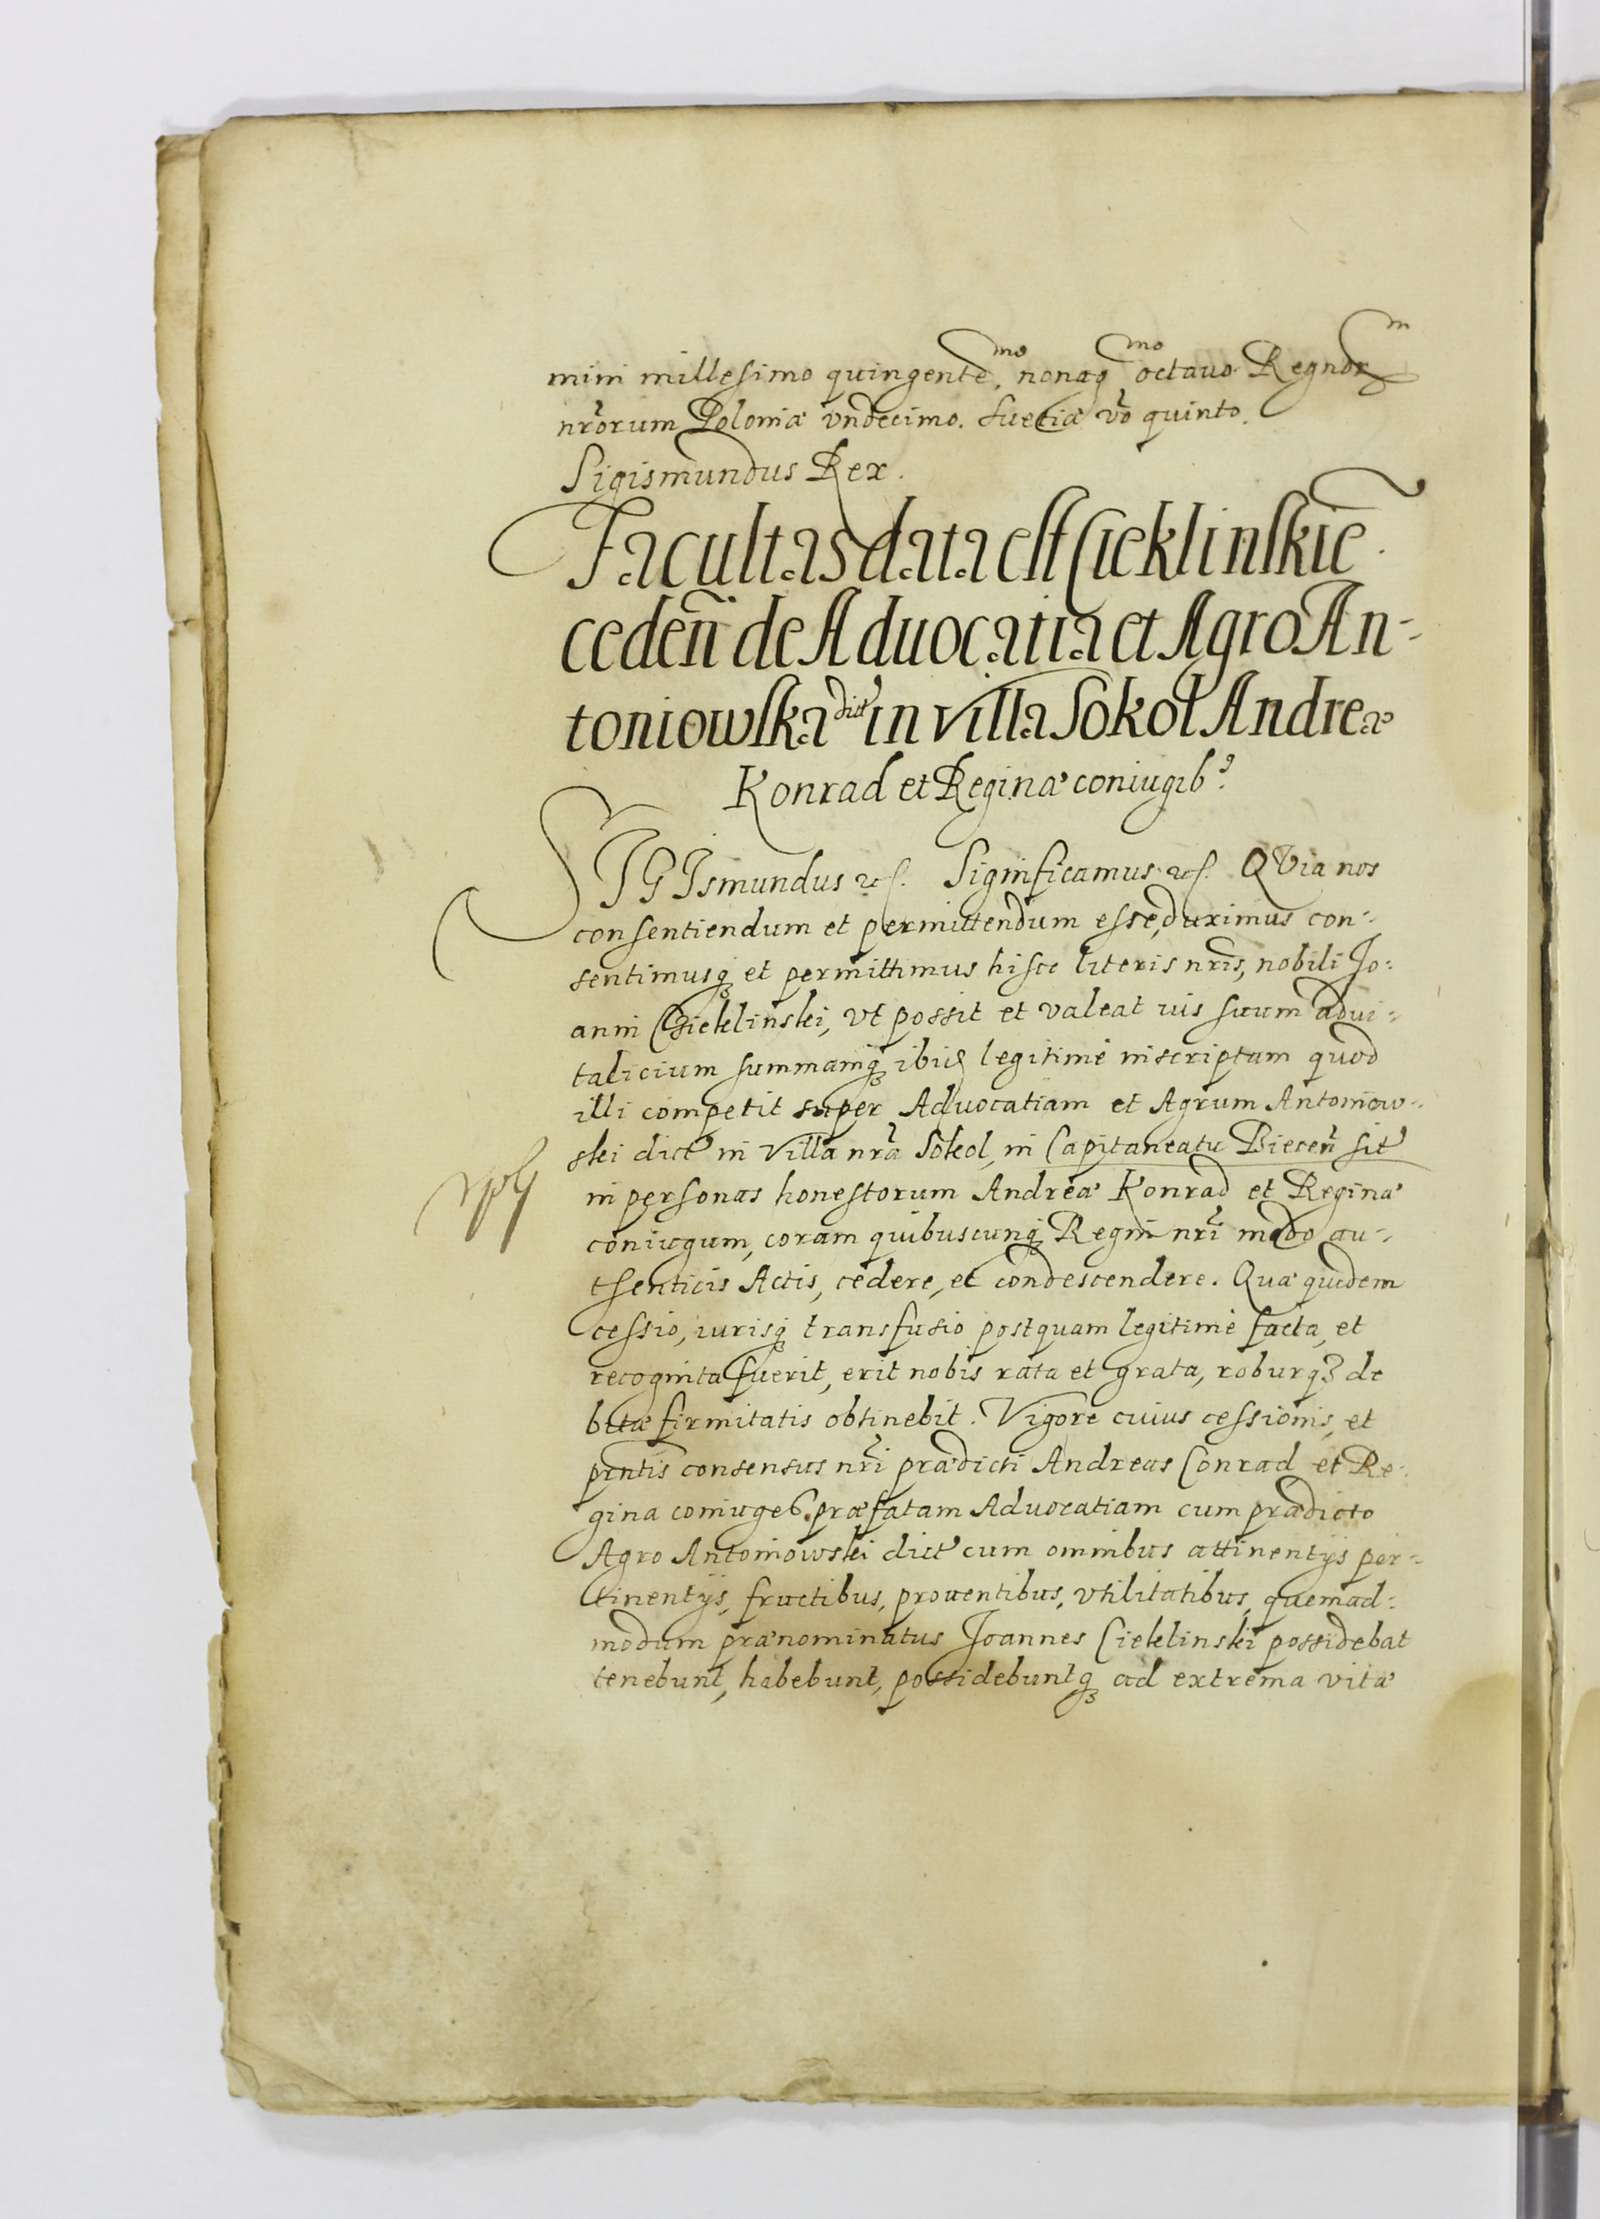 mini millesimo quingente^mo, nonagᵐᵒ octauo Regnorᵐ
nr̃orum Poloniæ vndecimo. Sueciæ vō quinto.
Sigismundus Rex.
Facultas data est Cieklinskie
cedeñ de Aduocatia et Agro An-
toniowska dict' in villa Sokol Andreæ
Konrad et Reginæ coniugib⁹
SIGIsmundus etc. Significamus etc. QVia nos
consentiendum et permittendum esse, duximus con-
sentimusq; et permittimus hisce literis nr̃is, nobili Jo-
anni Cieklinski, vt possit et valeat ius suum adui-
talicium summamq; ibid legitimè inscriptam quod
illi competit super Aduocatiam et Agrum Antoniow-
ski dict' in Villa nr̃a Sokol, in Capitaneatu Bieceñ sit'
in personas honestorum Andreæ Konrad et Reginæ
coniugum, coram quibuscunq; Regni nr̃i modo au-
thenticis Actis, cedere, et condescendere. Quæ quidem
cessio, iurisq; transfusio postquam legitimè facta, et
recognita fuerit, erit nobis rata et grata, roburq; de
bitæ firmitatis obtinebit. Vigore cuius cessionis, et
pr̃ntis consensus nr̃i prædicti Andreas Conrad et Re-
gina coniuges præfatam Aduocatiam cum prædicto
Agro Antoniowski dict' cum omnibus attinentijs per-
tinentijs, fructibus, prouentibus, vtilitatibus, quemad-
modum prænominatus Joannes Cieklinski possidebat
tenebunt, habebunt, possidebuntq; ad extrema vitæ